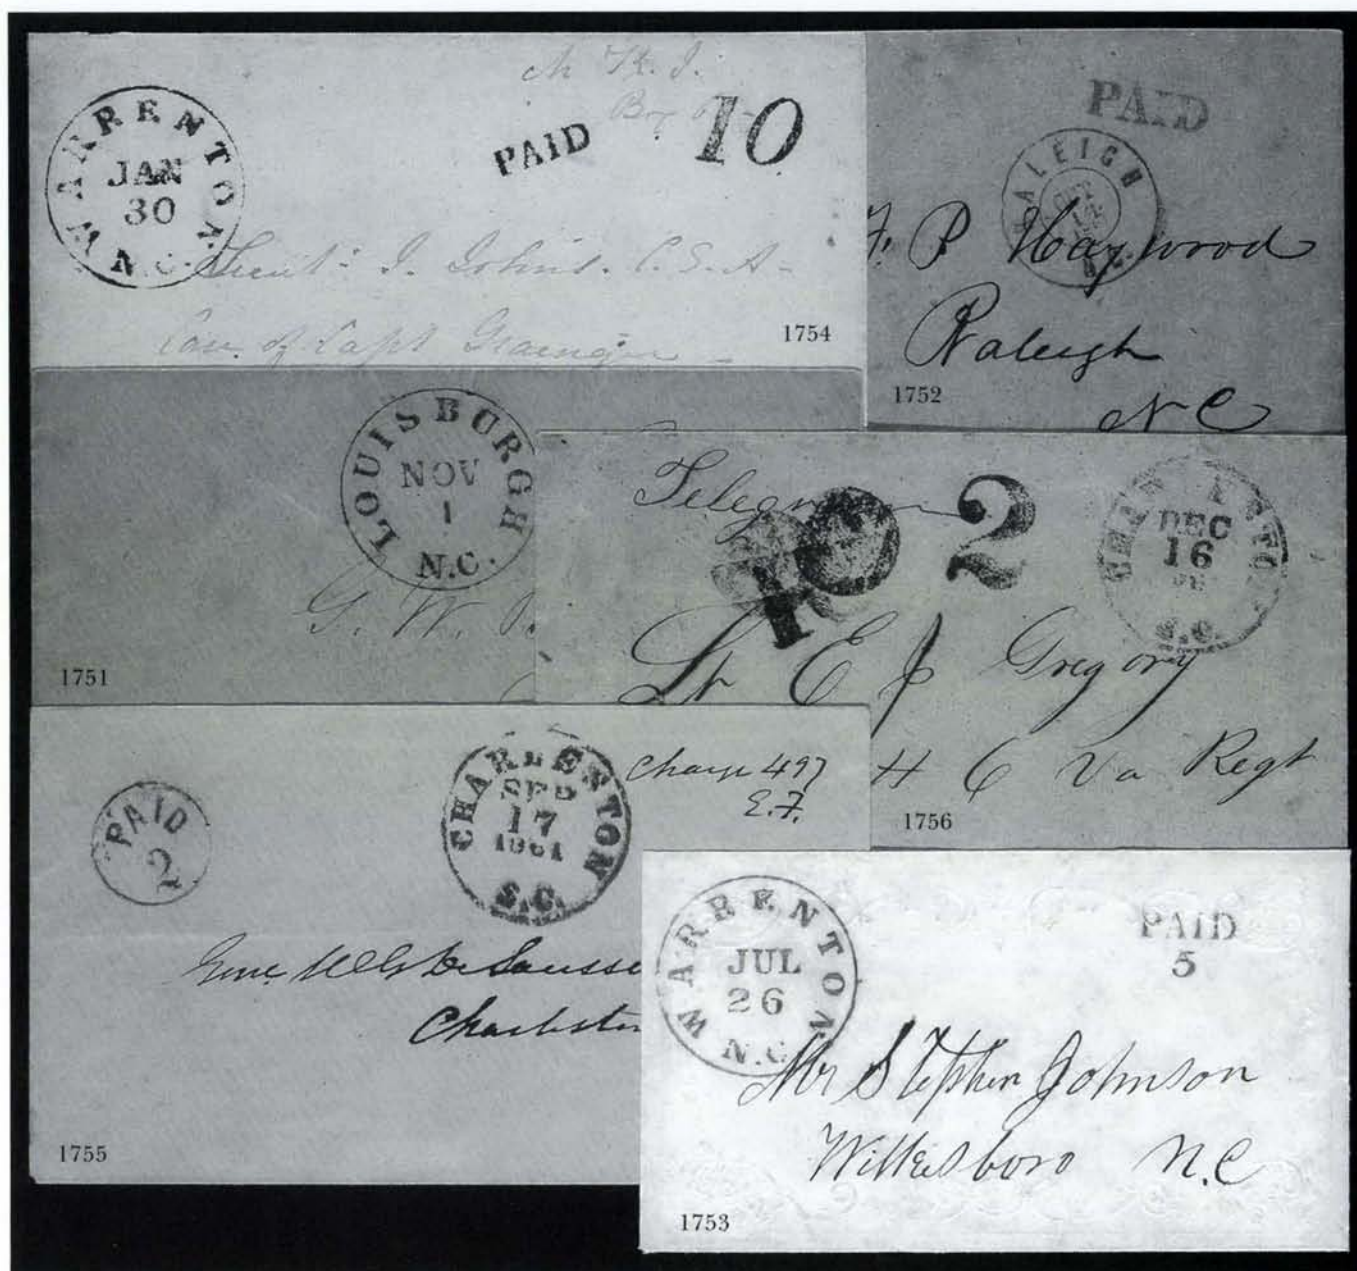 WARRENTON
JAN
30
N.C.
PAID
10
Lieut: J. Johns. C.S.A-
Care of Capt
1754
PAID
RALEIGH
F. P Haywood
Raleigh
N C
1752
LOUISBURGH
NOV
1
N.C.
G. W.
1751
Telegram
2
DEC
16
S.C.
Lt E J Gregory
H 6 Va Regt
1756
PAID
2
CHARLESTON
SEP
17
1861
S.C.
Charge 497
E.F.
Genl
Charleston
1755
WARRENTON
JUL
26
N.C.
PAID
5
Mr Stephen Johnson
Wilkesboro N.C
1753